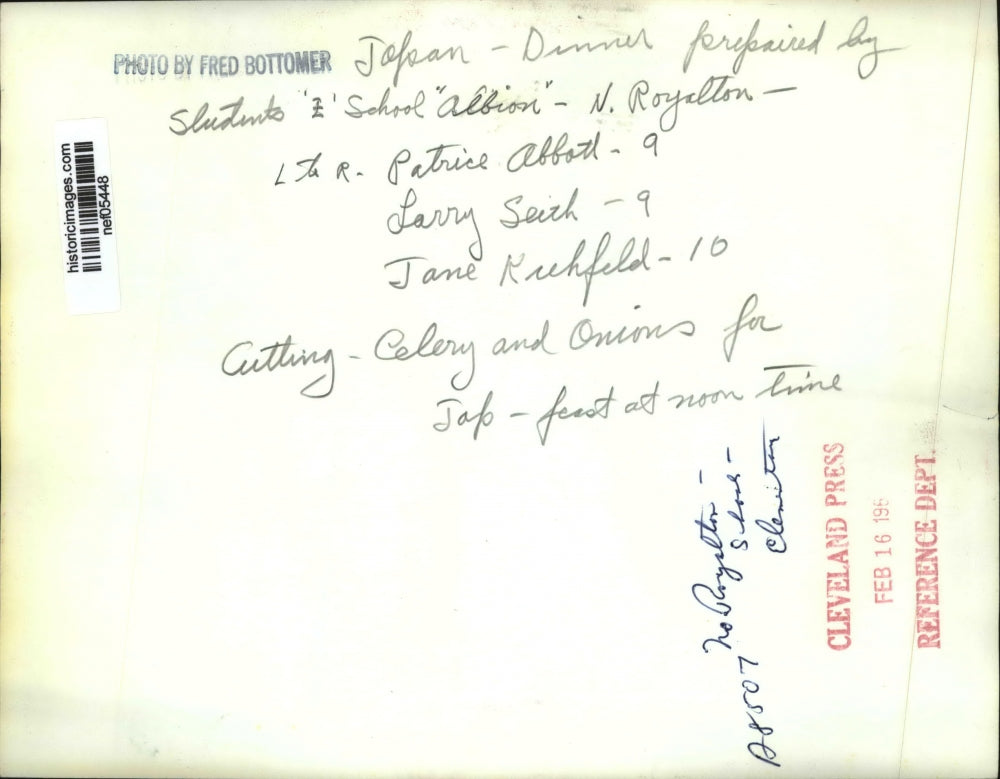 PHOTO BY FRED BOTTOMER
Japan - Dinner prepaired by
Students 'E' School "Albion" - N. Royalton -
L to R. Patrice Abbott - 9
Larry Seith - 9
Jane Kuhfeld - 10
Cutting - Celery and Onions for
Jap - feast at noon time
historicimages.com
nef05448
No Royalton -
Schools -
CLEVELAND PRESS
FEB 16 196
REFERENCE DEPT.